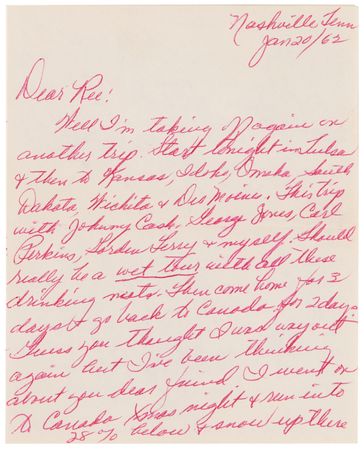 Nashville Tenn
Jan 20/62
Dear Ree!
Well I'm taking off again on
another trip. Start tonight in Tulsa
& then to Kansas, Idoho, Omaha, South
Dakota, Wichita & Des Moines. This trip
with Johnny Cash, George Jones, Carl
Perkins, Gordon Terry & myself. Should
really be a wet tour with all these
drinking nuts. Then come home for 3
days & go back to Canada for 2 days.
Guess you thought I was way out
again but I've been thinking
about you dear friend. I went on
to Canada Xmas night & run into
28% below & snow up there